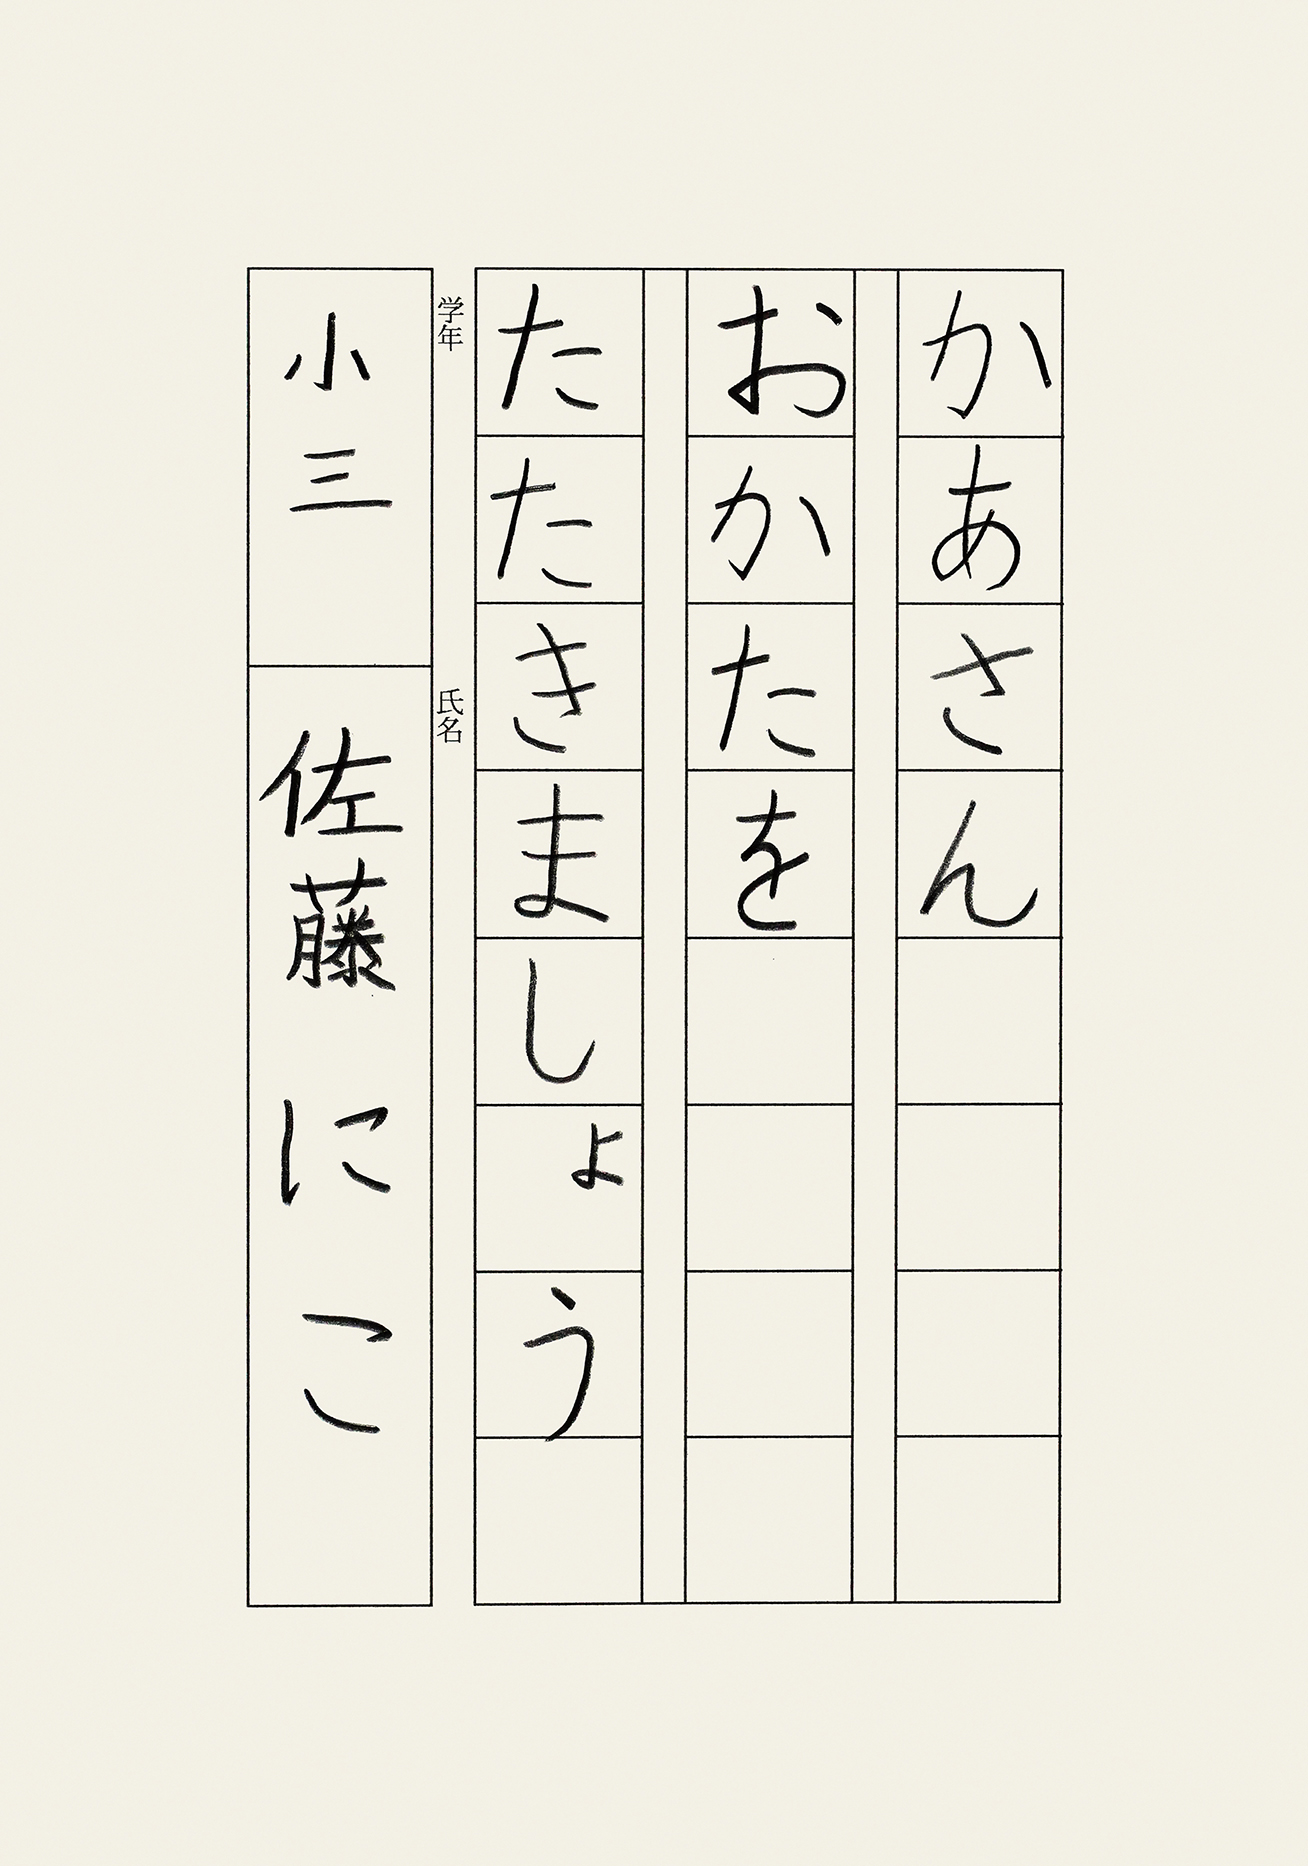 かあさん
おかたを
たたきましょう
学年
小三
氏名
佐藤にこ